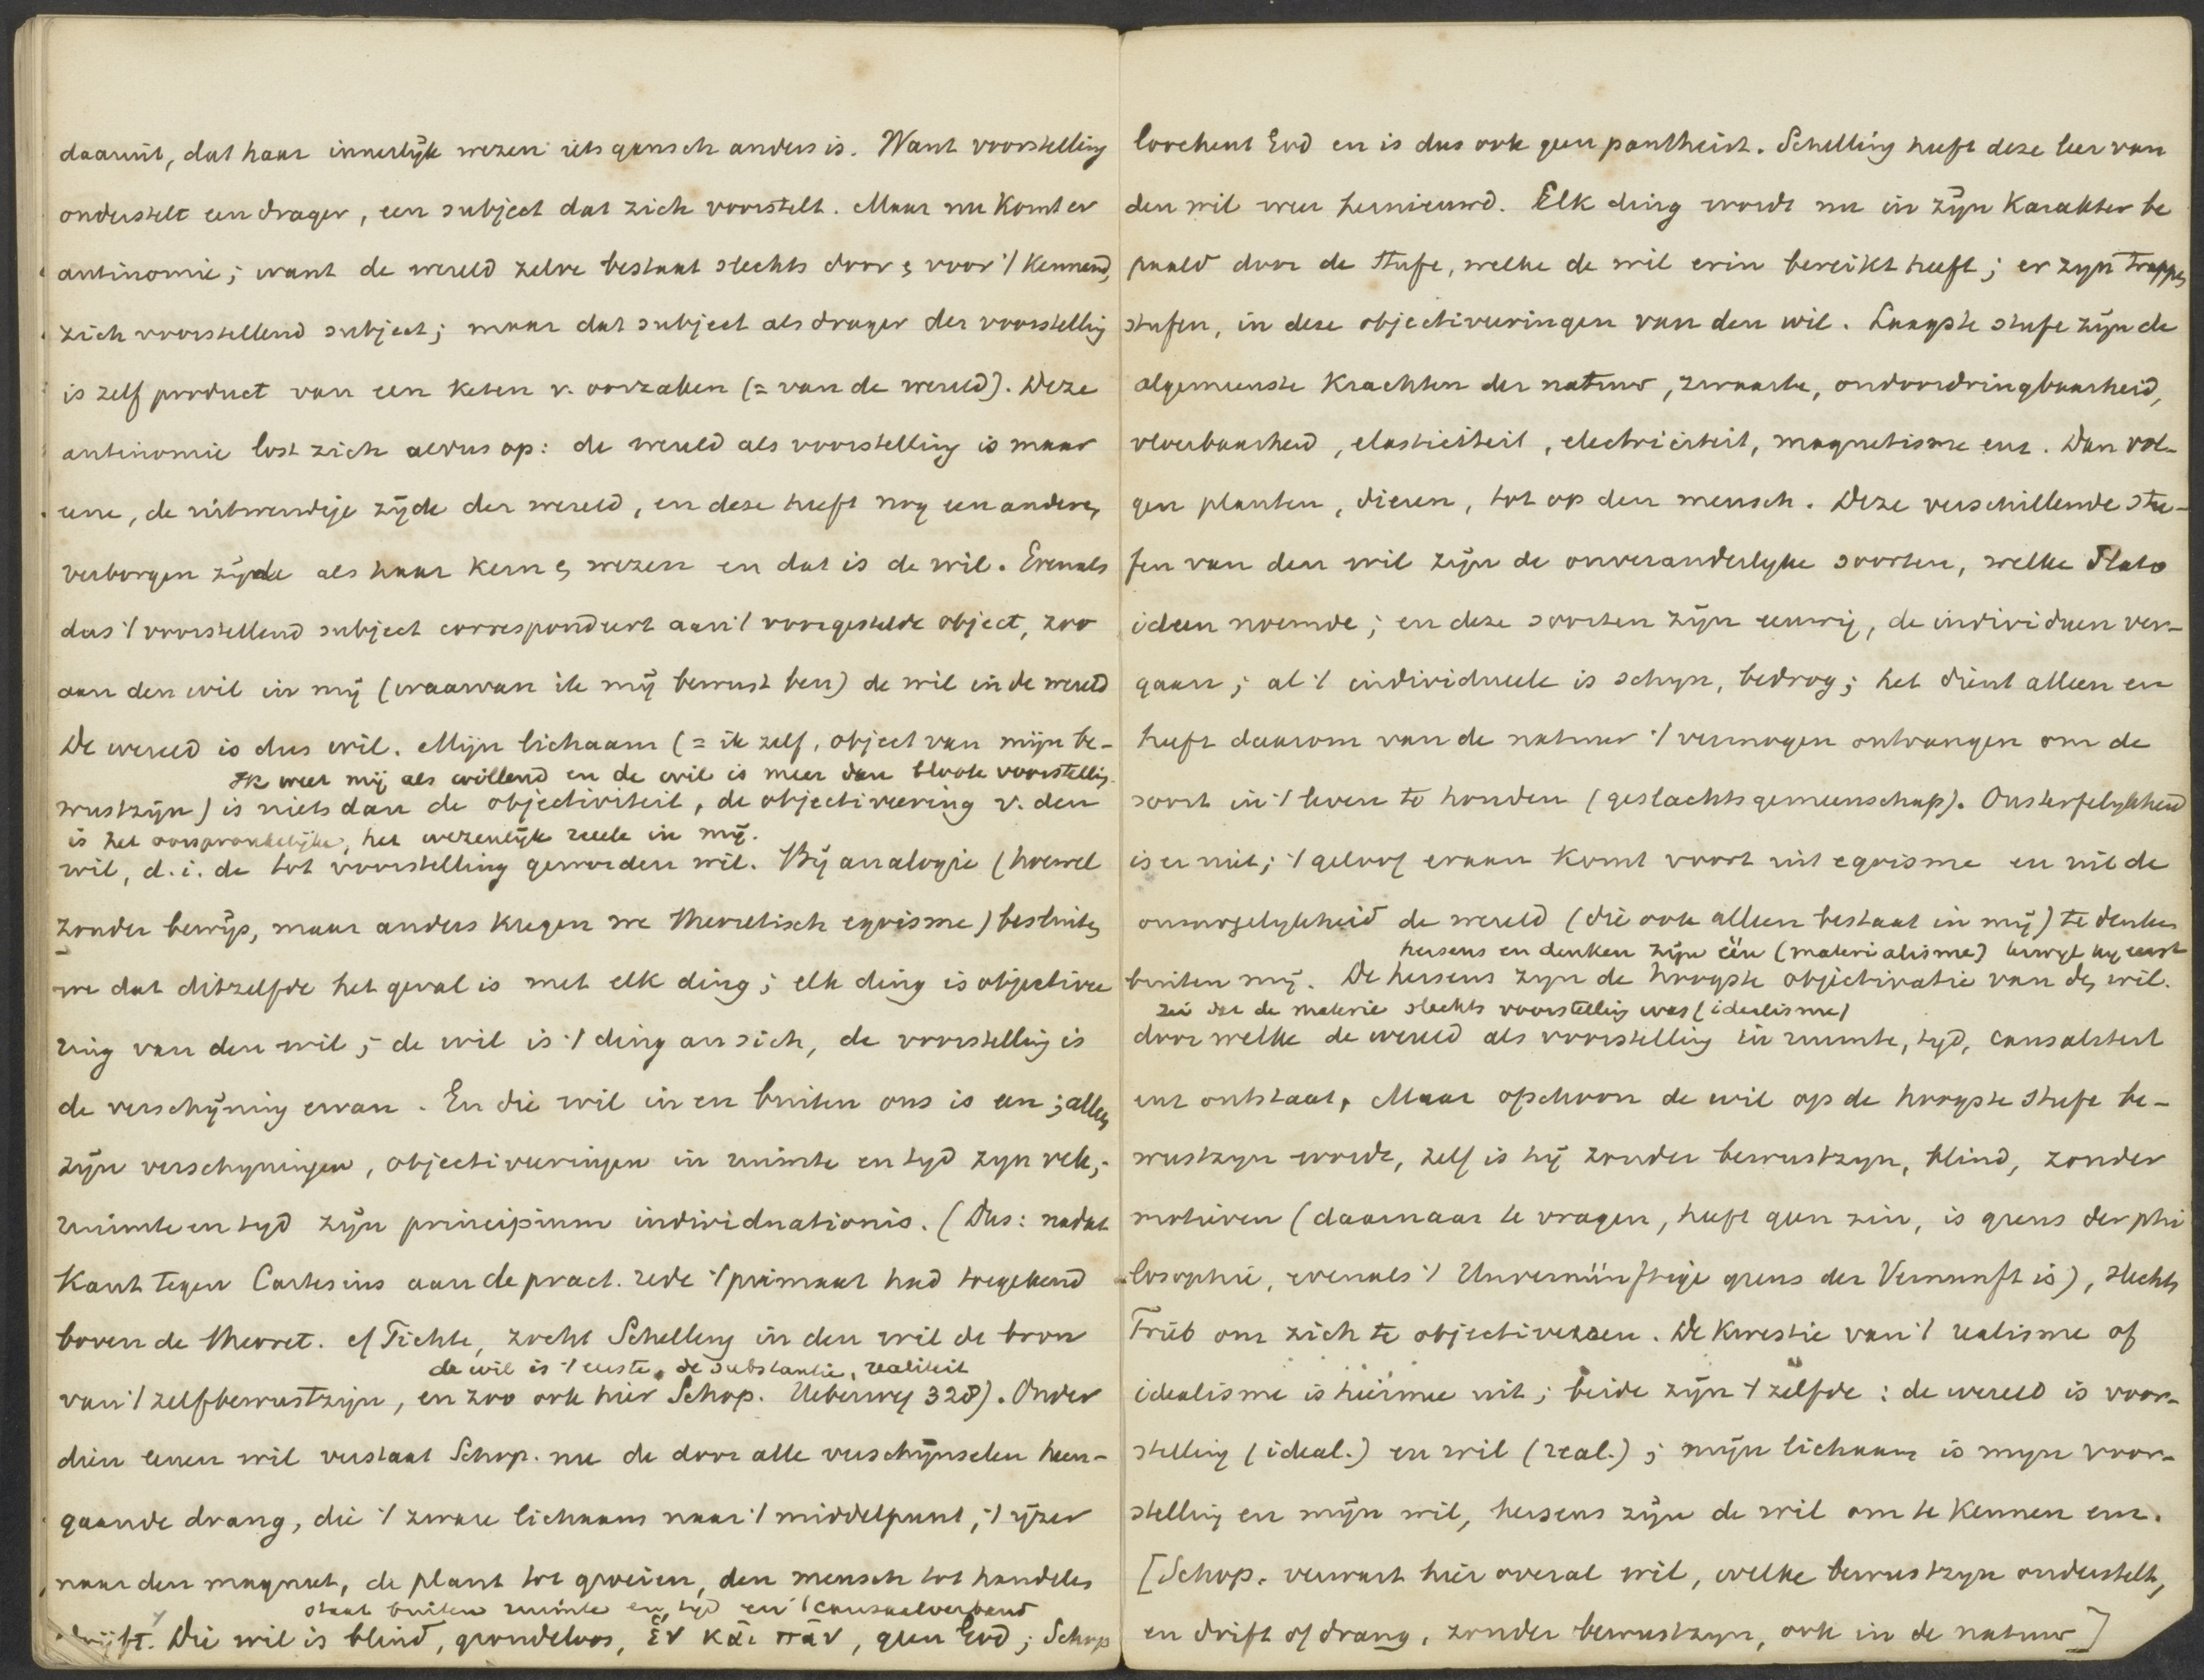 daaruit, dat haar innerlijk wezen iets gansch anders is. Want voorstelling
onderstelt een drager, een subject dat zich voorstelt. Maar nu komt er
antinomie; want de wereld zelve bestaat slechts door & voor 't kennend,
zich voorstellend subject; maar dat subject als drager der voorstellig
is zelf product van een keten v. oorzaken (= van de wereld). Deze
antinomie lost zich aldus op: de wereld als voorstelling is maar
eene, de uitwendige zijde der wereld, en deze heeft nog een andere,
verborgen zijde als haar kern & wezen en dat is de wil. Evenals
dus 't voorstellend subject correspondeert aan 't voorgestelde object, zoo
aan den wil in mij (waarvan ik mij bewust ben) de wil in de wereld
De wereld is dus wil. Mijn lichaam (= ik zelf, object van mijn be-
Ik weet mij als willend en de wil is meer dan bloote voorstellig.
wustzijn) is niets dan de objectiviteit, de objectiveering v. den
is het oorspronkelijke, het wezenlijk reele in mij.
wil, d.i. de tot voorstelling geworden wil. Bij analogie (hoewel
zonder bewijs, maar anders kregen we theoretisch egoisme) besluiten
we dat ditzelfde het geval is met elk ding; elk ding is objectivee
ring van den wil; de wil is 't ding an sich, de voorstelling is
de verschijning ervan. En die wil in en buiten ons is een; allen
zijn verschyningen, objectiveeringen in ruimte en tyd zyn vele;
ruimte en tyd zijn principium individuationis. (Dus: nadat
Kant tegen Cartesius aan de pract. rede 't primaat had toegekend
boven de theoret. cf Fichte, zocht Schelling in den wil de bron
de wil is 't eerste, de substantie, realiteit
van 't zelfbewustzijn, en zoo ook hier Schop. Ueberweg 328). Onder
dien eenen wil verstaat Schop. nu de door alle verschijnselen heen-
gaande drang, die 't zware lichaam naar 't middelpunt, 't ijzer
naar den magneet, de plant tot groeien, den mensch tot handelen
staat buiten ruimte en tyd en 't causaalverband
drijft. Die wil is blind, grondeloos, ἓν καὶ πᾶν, geen God; Schop
loochent God en is dus ook geen pantheist. Schelling heeft deze leer van
den wil weer hernieuwd. Elk ding wordt nu in zijn karakter be
paald door de Stufe, welke de wil erin bereikt heeft; er zyn trappen
stufen, in deze objectiveeringen van den wil. Laagste stufe zijn de
algemeenste krachten der natuur, zwaarte, ondoordringbaarheid,
vloeibaarheid, elasticiteit, electriciteit, magnetisme enz. Dan vol-
gen planten, dieren, tot op den mensch. Deze verschillende stu-
fen van den wil zijn de onveranderlyke soorten, welke Plato
ideen noemde; en deze soorten zijn eeuwig, de individuen ver-
gaan; al 't individueele is schyn, bedrog; het dient alleen en
heeft daarom van de natuur 't vermogen ontvangen om de
soort in 't leven te houden (geslachtsgemeenschap). Onsterfelykheid
is er niet; 't geloof eraan komt voort uit egoisme en uit de
onmogelykheid de wereld (die ook alleen bestaat in mij) te denken
hersens en denken zijn één (materialisme) terwyl hy eerst
buiten mij. De hersens zyn de hoogste objectivatie van den wil.
zei dat de materie slechts voorstellig was (idealisme)
door welke de wereld als voorstelling in ruimte, tyd, causaliteit
enz ontstaat. Maar ofschoon de wil op de hoogste Stufe be-
wustzyn wordt, zelf is hij zonder bewustzyn, blind, zonder
motieven (daarnaar te vragen, heeft geen zin, is grens der phi
losophie, evenals 't Unvernünftige grens der Vernunft is), slechts
Trieb om zich te objectiveeren. De kwestie van 't realisme of
idealisme is hiermee uit; beide zijn 't zelfde: de wereld is voor-
stelling (ideal.) en wil (real.); mijn lichaam is myn voor-
stelling en mijn wil, hersens zijn de wil om te kennen enz.
[Schop. verwart hier overal wil, welke bewustzyn onderstelt,
en drift of drang, zonder bewustzyn, ook in de natuur]